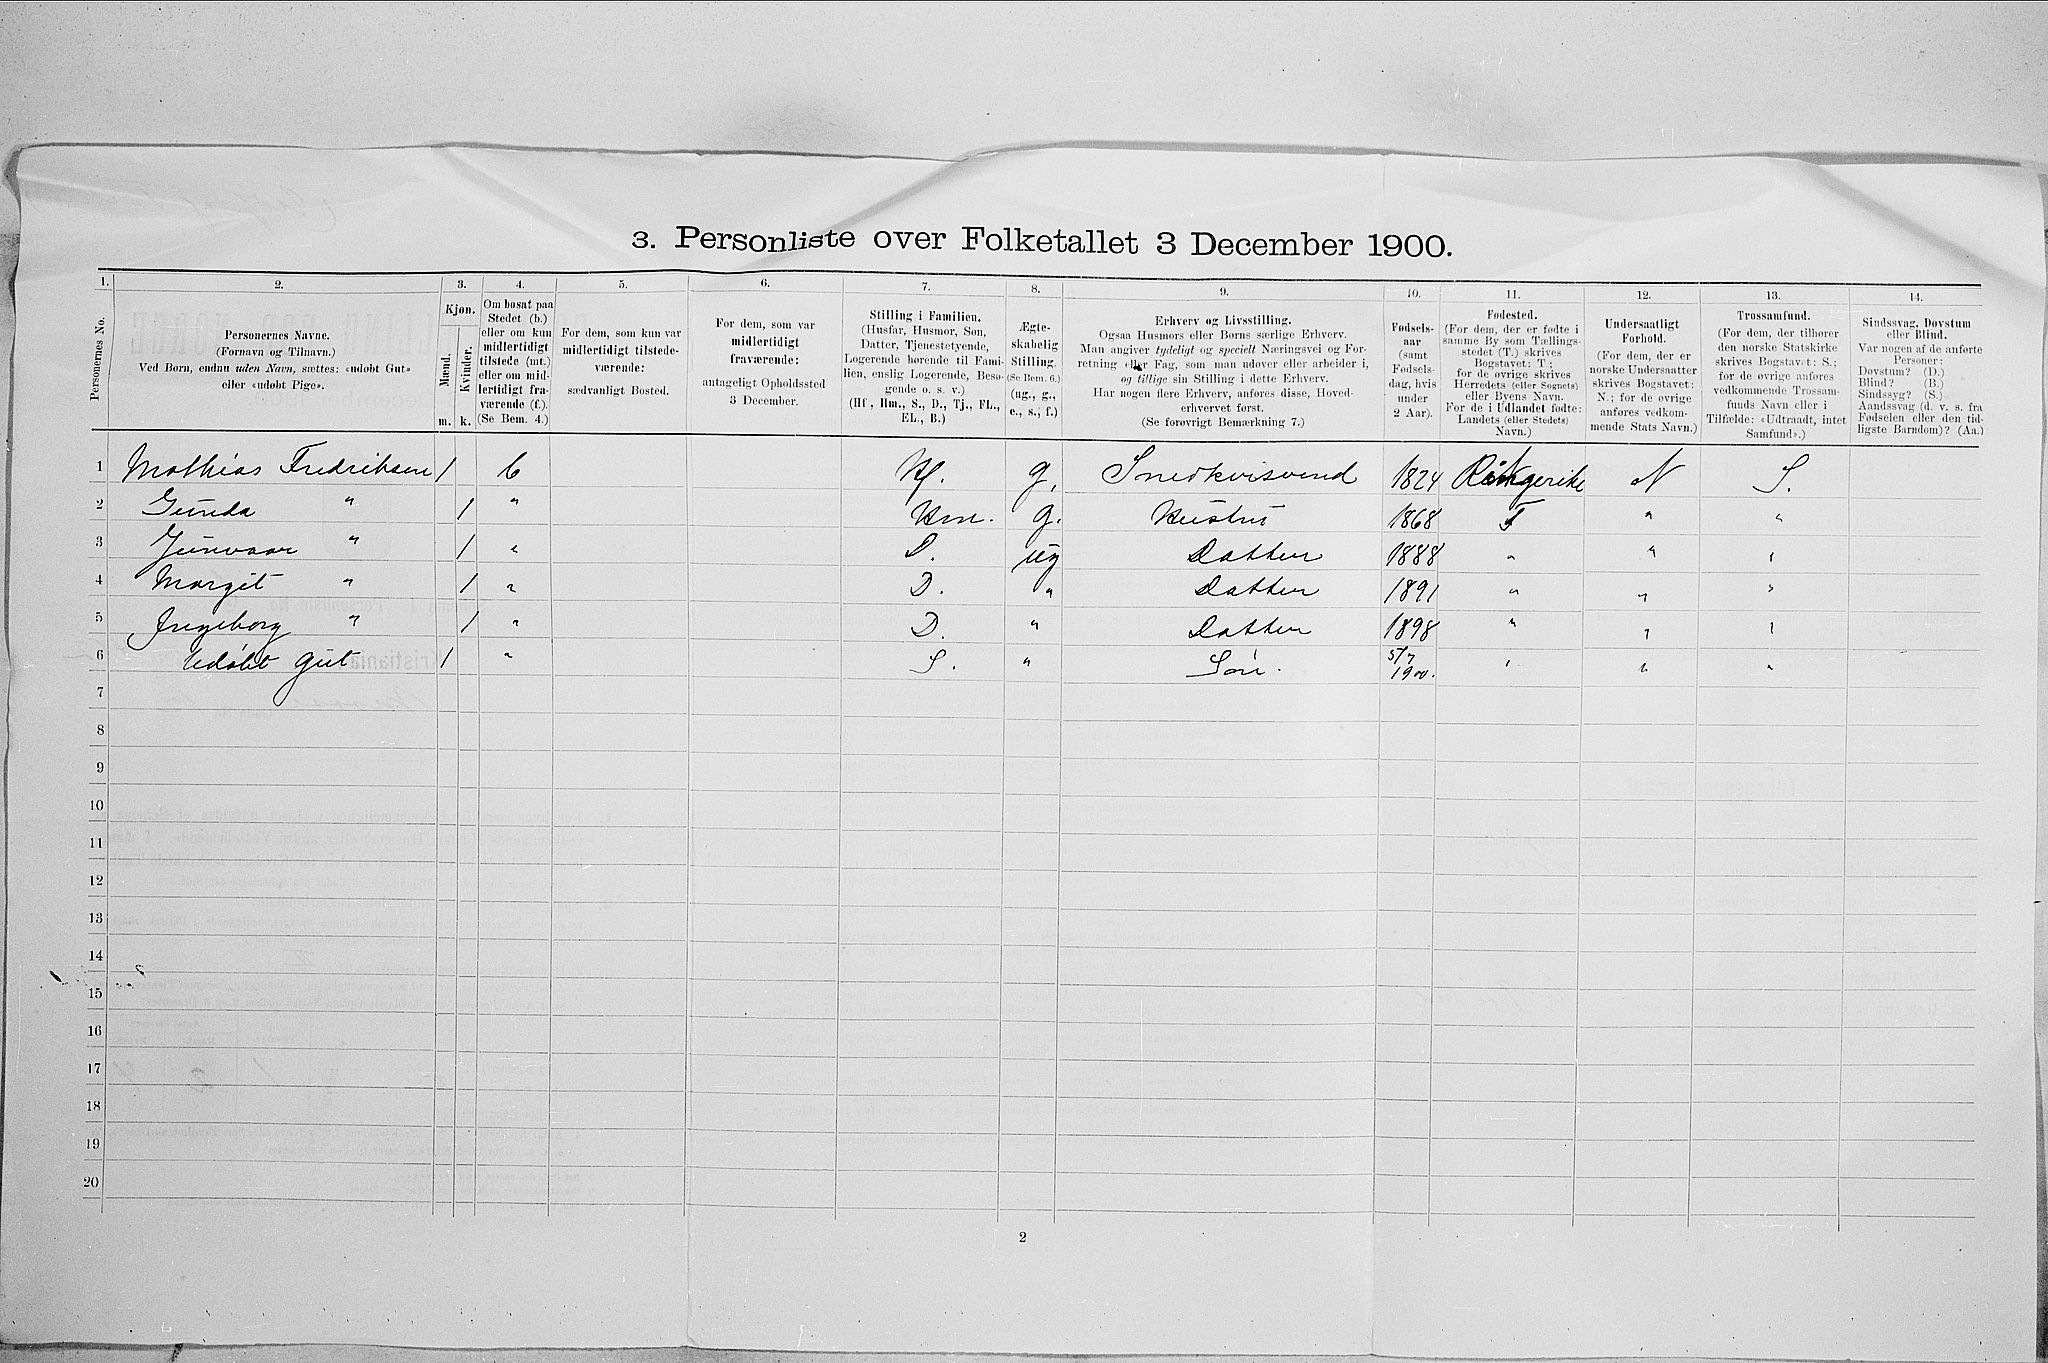 3. Personliste over Folketallet 3 December 1900.
1. 2. 3. 4. 5. 6. 7. 8. 9. 10. 11. 12. 13. 14.
Personernes No.
Personernes Navne.
(Fornavn og Tilnavn.)
Ved Børn, endnu uden Navn, sættes: «udøbt Gut»
eller «udøbt Pige».
Kjøn.
Mænd.
Kvinder.
m. k.
Om bosat paa
Stedet (b.)
eller om kun
midlertidigt
tilstede (mt.)
eller om mid-
lertidigt fra-
værende (f.).
(Se Bem. 4.)
For dem, som kun var
midlertidigt tilstede-
værende:
sædvanligt Bosted.
For dem, som var
midlertidigt
fraværende:
antageligt Opholdssted
3 December.
Stilling i Familien.
(Husfar, Husmor, Søn,
Datter, Tjenestetyende,
Logerende hørende til Fami-
lien, enslig Logerende, Besø-
gende o. s. v.)
(Hf., Hm., S., D., Tj., FL.,
EL., B.)
Ægte-
skabelig
Stilling.
(Se Bem. 6.)
(ug., g.,
e., s., f.)
Erhverv og Livsstilling.
Ogsaa Husmors eller Børns særlige Erhverv.
Man angiver tydeligt og specielt Næringsvei og For-
retning eller Fag, som man udøver eller arbeider i,
og tillige sin Stilling i dette Erhverv.
Har nogen flere Erhverv, anføres disse, Hoved-
erhvervet først.
(Se forøvrigt Bemærkning 7.)
Fødsels-
aar
(samt
Fødsels-
dag, hvis
under
2 Aar).
Fødested.
(For dem, der er fødte i
samme By som Tællings-
stedet (T.) skrives
Bogstavet: T;
for de øvrige skrives
Herredets (eller Sognets)
eller Byens Navn.
For de i Udlandet fødte:
Landets (eller Stedets)
Navn.)
Undersaatligt
Forhold.
(For dem, der er
norske Undersaatter
skrives Bogstavet:
N.; for de øvrige
anføres vedkom-
mende Stats Navn.)
Trossamfund.
(For dem, der tilhører
den norske Statskirke
skrives Bogstavet: S.;
for de øvrige anføres
vedkommende Trossam-
funds Navn eller i
Tilfælde: «Udtraadt, intet
Samfund».)
Sindssvag, Døvstum
eller Blind.
Var nogen af de anførte
Personer:
Døvstum? (D.)
Blind? (B.)
Sindssyg? (S.)
Aandssvag (d. v. s. fra
Fødselen eller den tid-
ligste Barndom)? (Aa.)
1 Mathias Fredriksen 1 b Hf. g. Snedkersvend 1824 Ringerike N S.
2 Gunda " 1 " Hm. g. Hustru 1868 T " "
3 Gunvaar " 1 " D. ug Datter 1888 " " "
4 Margit " 1 " D. " Datter 1891 " " "
5 Ingeborg " 1 " D. " Datter 1898 " " "
6 Udøbt Gut 1 " S. " Søn. 5/7 1900. " " "
7
8
9
10
11
12
13
14
15
16
17
18
19
20
2